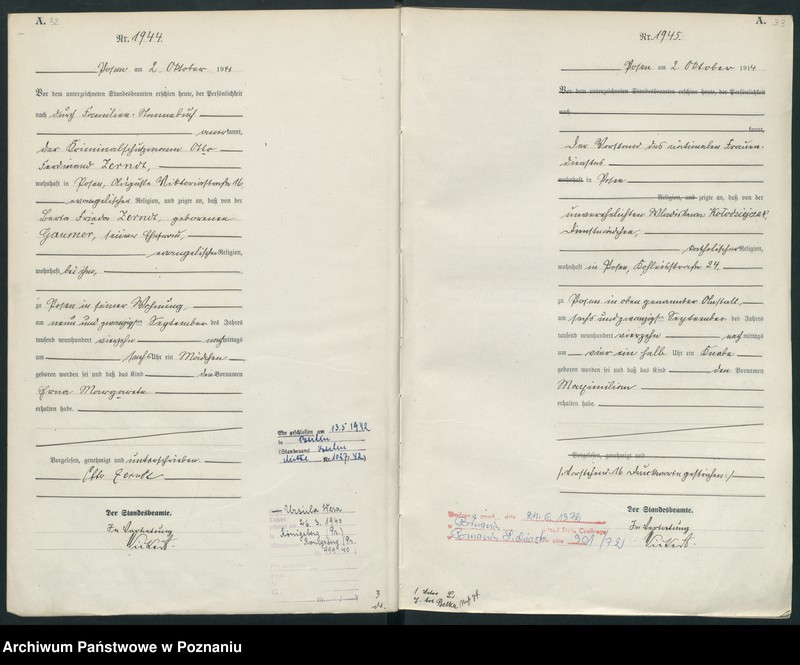 A. 32
Nr. 1944.
Posen am 2. Oktober 1914
Vor dem unterzeichneten Standesbeamten erschien heute, der Persönlichkeit
nach durch Familien-Stammbuch
anerkannt,
der Kriminalschutzmann Otto
Ferdinand Zerndt,
wohnhaft in Posen, Auguste Viktoriastraße 16,
evangelischer Religion, und zeigte an, daß von der
Berta Frieda Zerndt, geborenen
Gaumer, seiner Ehefrau,
evangelischer Religion,
wohnhaft bei ihm,
zu Posen in seiner Wohnung
am neun und zwanzigsten September des Jahres
tausend neunhundert vierzehn nachmittags
um sechs Uhr ein Mädchen
geboren worden sei und daß das Kind den Vornamen
Erna Margarete
erhalten habe.
Vorgelesen, genehmigt und unterschrieben
Otto Zerndt
Der Standesbeamte.
In Vertretung
Ehe geschlossen am 13.5 1942
in Berlin
(Standesamt Berlin
Mitte Nr 1067/42)
Ursula Vera
26. 3. 1940
Königsberg (Pr.)
Königsberg (Pr.
999 40
3
A. 33
Nr. 1945.
Posen am 2. Oktober 1914
Vor dem unterzeichneten Standesbeamten erschien heute, der Persönlichkeit
nach
kannt,
Der Vorstand des nationalen Frauen-
dienstes
wohnhaft in Posen
Religion, und zeigte an, daß von der
unverehelichten Wladislawa Kołodziejczak,
Dienstmädchen,
katholischer Religion,
wohnhaft in Posen, Kohleisstraße 24,
zu Posen in oben genannter Anstalt
am sechs und zwanzigsten September des Jahres
tausend neunhundert vierzehn nachmittags
um vier ein halb Uhr ein Knabe
geboren worden sei und daß das Kind den Vornamen
Maximilian
erhalten habe.
Vorgelesen, genehmigt und
/: Vorstehend 16 Druckworte gestrichen :/
Der Standesbeamte.
In Vertretung
29. 6. 1972
Poznaniu
901/72
Archiwum Państwowe w Poznaniu